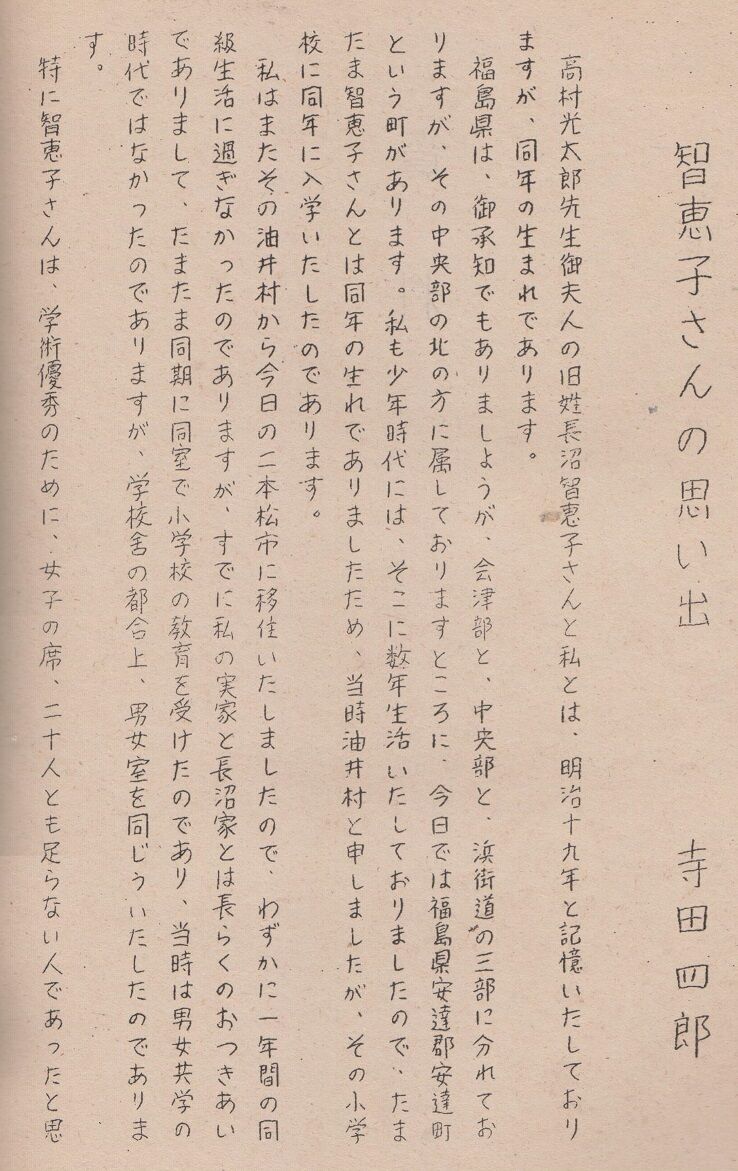 智恵子さんの思い出
寺田四郎
高村光太郎先生御夫人の旧姓長沼智恵子さんと私とは、明治十九年と記憶いたしており
ますが、同年の生まれであります。
福島県は、御承知でもありましようが、会津部と、中央部と、浜街道の三部に分れてお
りますが、その中央部の北の方に属しておりますところに、今日では福島県安達郡安達町
という町があります。私も少年時代には、そこに数年生活いたしておりましたので、たま
たま智恵子さんとは同年の生れでありましたため、当時油井村と申しましたが、その小学
校に同年に入学いたしたのであります。
私はまたその油井村から今日の二本松市に移住いたしましたので、わずかに一年間の同
級生活に過ぎなかったのでありますが、すでに私の実家と長沼家とは長らくのおつきあい
でありまして、たまたま同期に同室で小学校の教育を受けたのであり、当時は男女共学の
時代ではなかったのでありますが、学校舎の都合上、男女室を同じういたしたのでありま
す。
特に智恵子さんは、学術優秀のために、女子の席、二十人とも足らない人であったと思